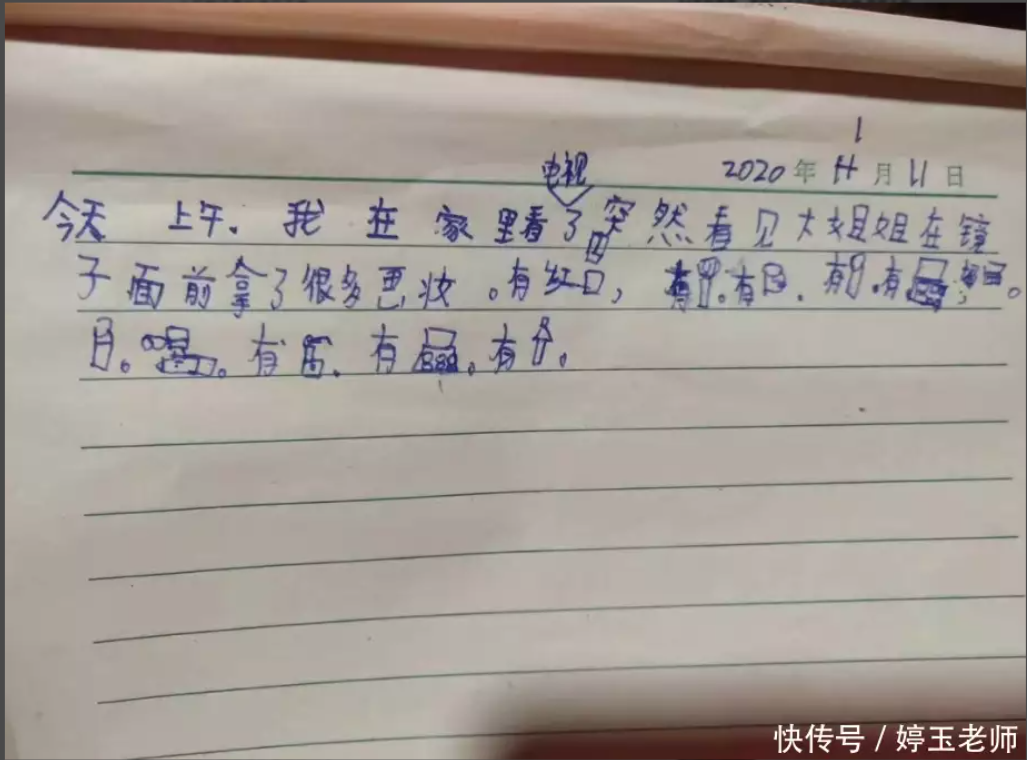 1
电视
2020 年 月 11 日
今天 上午. 我 在 家 里看了突然看见大姐姐在镜
子面前拿了很多巴妆。有红口, 有 。有 . 有 .有
有 、有 。有 。
快传号 / 婷玉老师